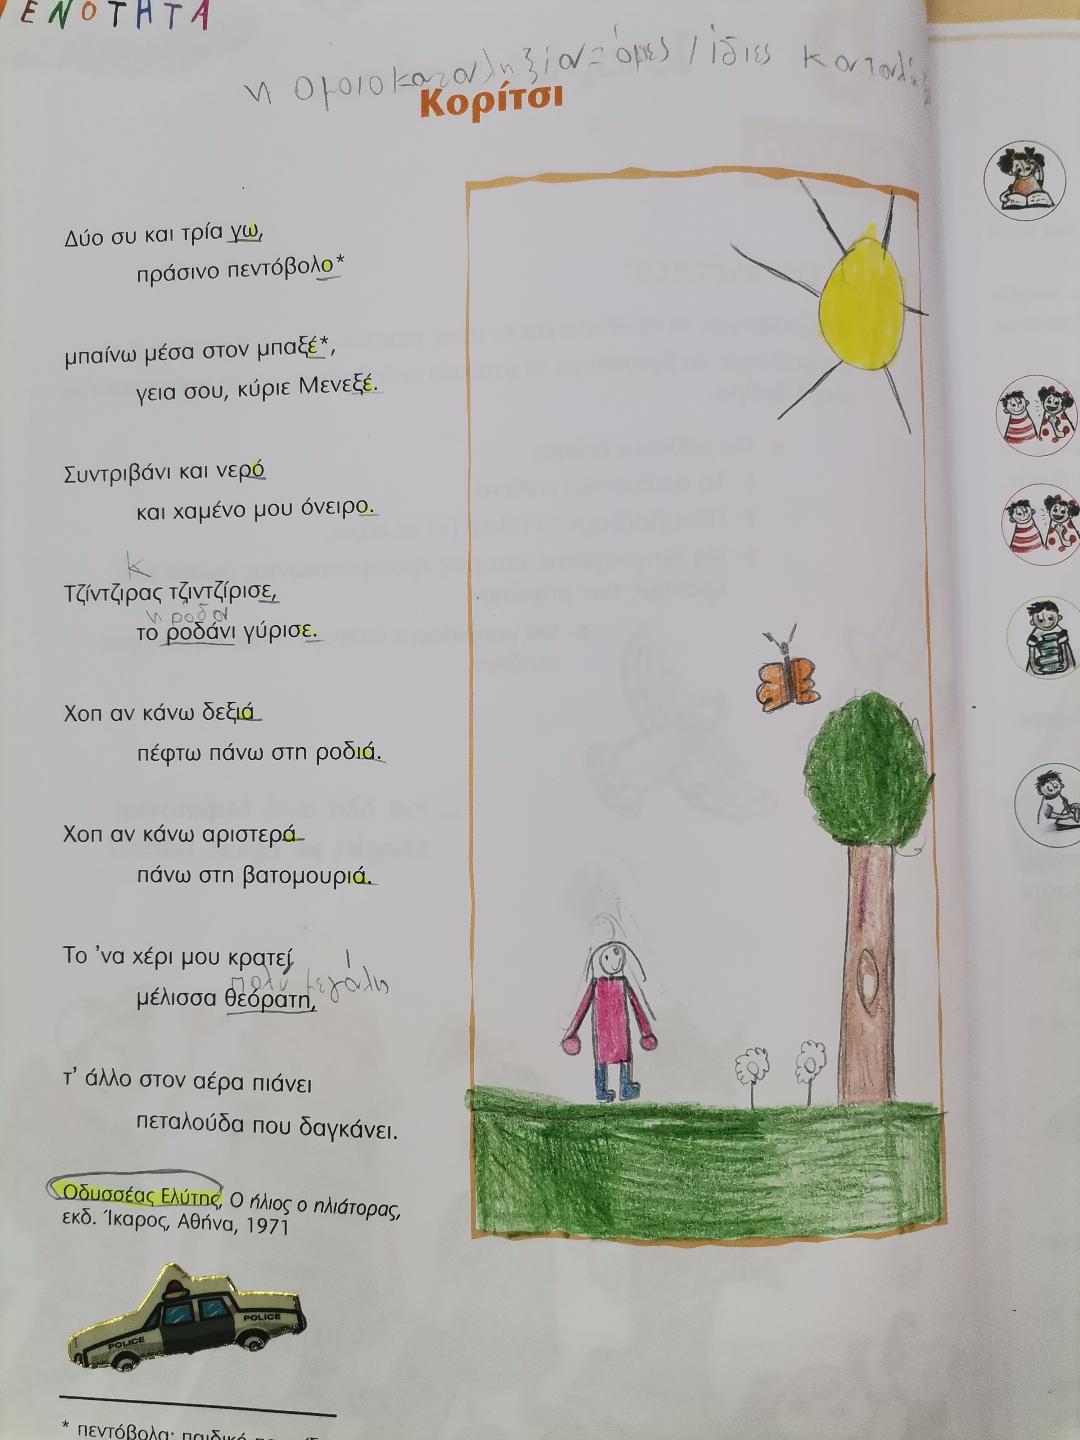 ΕΝΟΤΗΤΑ
η ομοιοκαταληξία = όμοιες / ίδιες
Κορίτσι
Δύο συ και τρία γω,
πράσινο πεντόβολο*
μπαίνω μέσα στον μπαξέ*,
γεια σου, κύριε Μενεξέ.
Συντριβάνι και νερό
και χαμένο μου όνειρο.
κ
Τζίντζιρας τζιντζίρισε,
η ρόδα
το ροδάνι γύρισε.
Χοπ αν κάνω δεξιά
πέφτω πάνω στη ροδιά.
Χοπ αν κάνω αριστερά
πάνω στη βατομουριά.
Το ’να χέρι μου κρατεί
πολύ μεγάλη
μέλισσα θεόρατη,
τ’ άλλο στον αέρα πιάνει
πεταλούδα που δαγκάνει.
Οδυσσέας Ελύτης, Ο ήλιος ο ηλιάτορας,
εκδ. Ίκαρος, Αθήνα, 1971
POLICE POLICE
* πεντόβολα: παιδικό